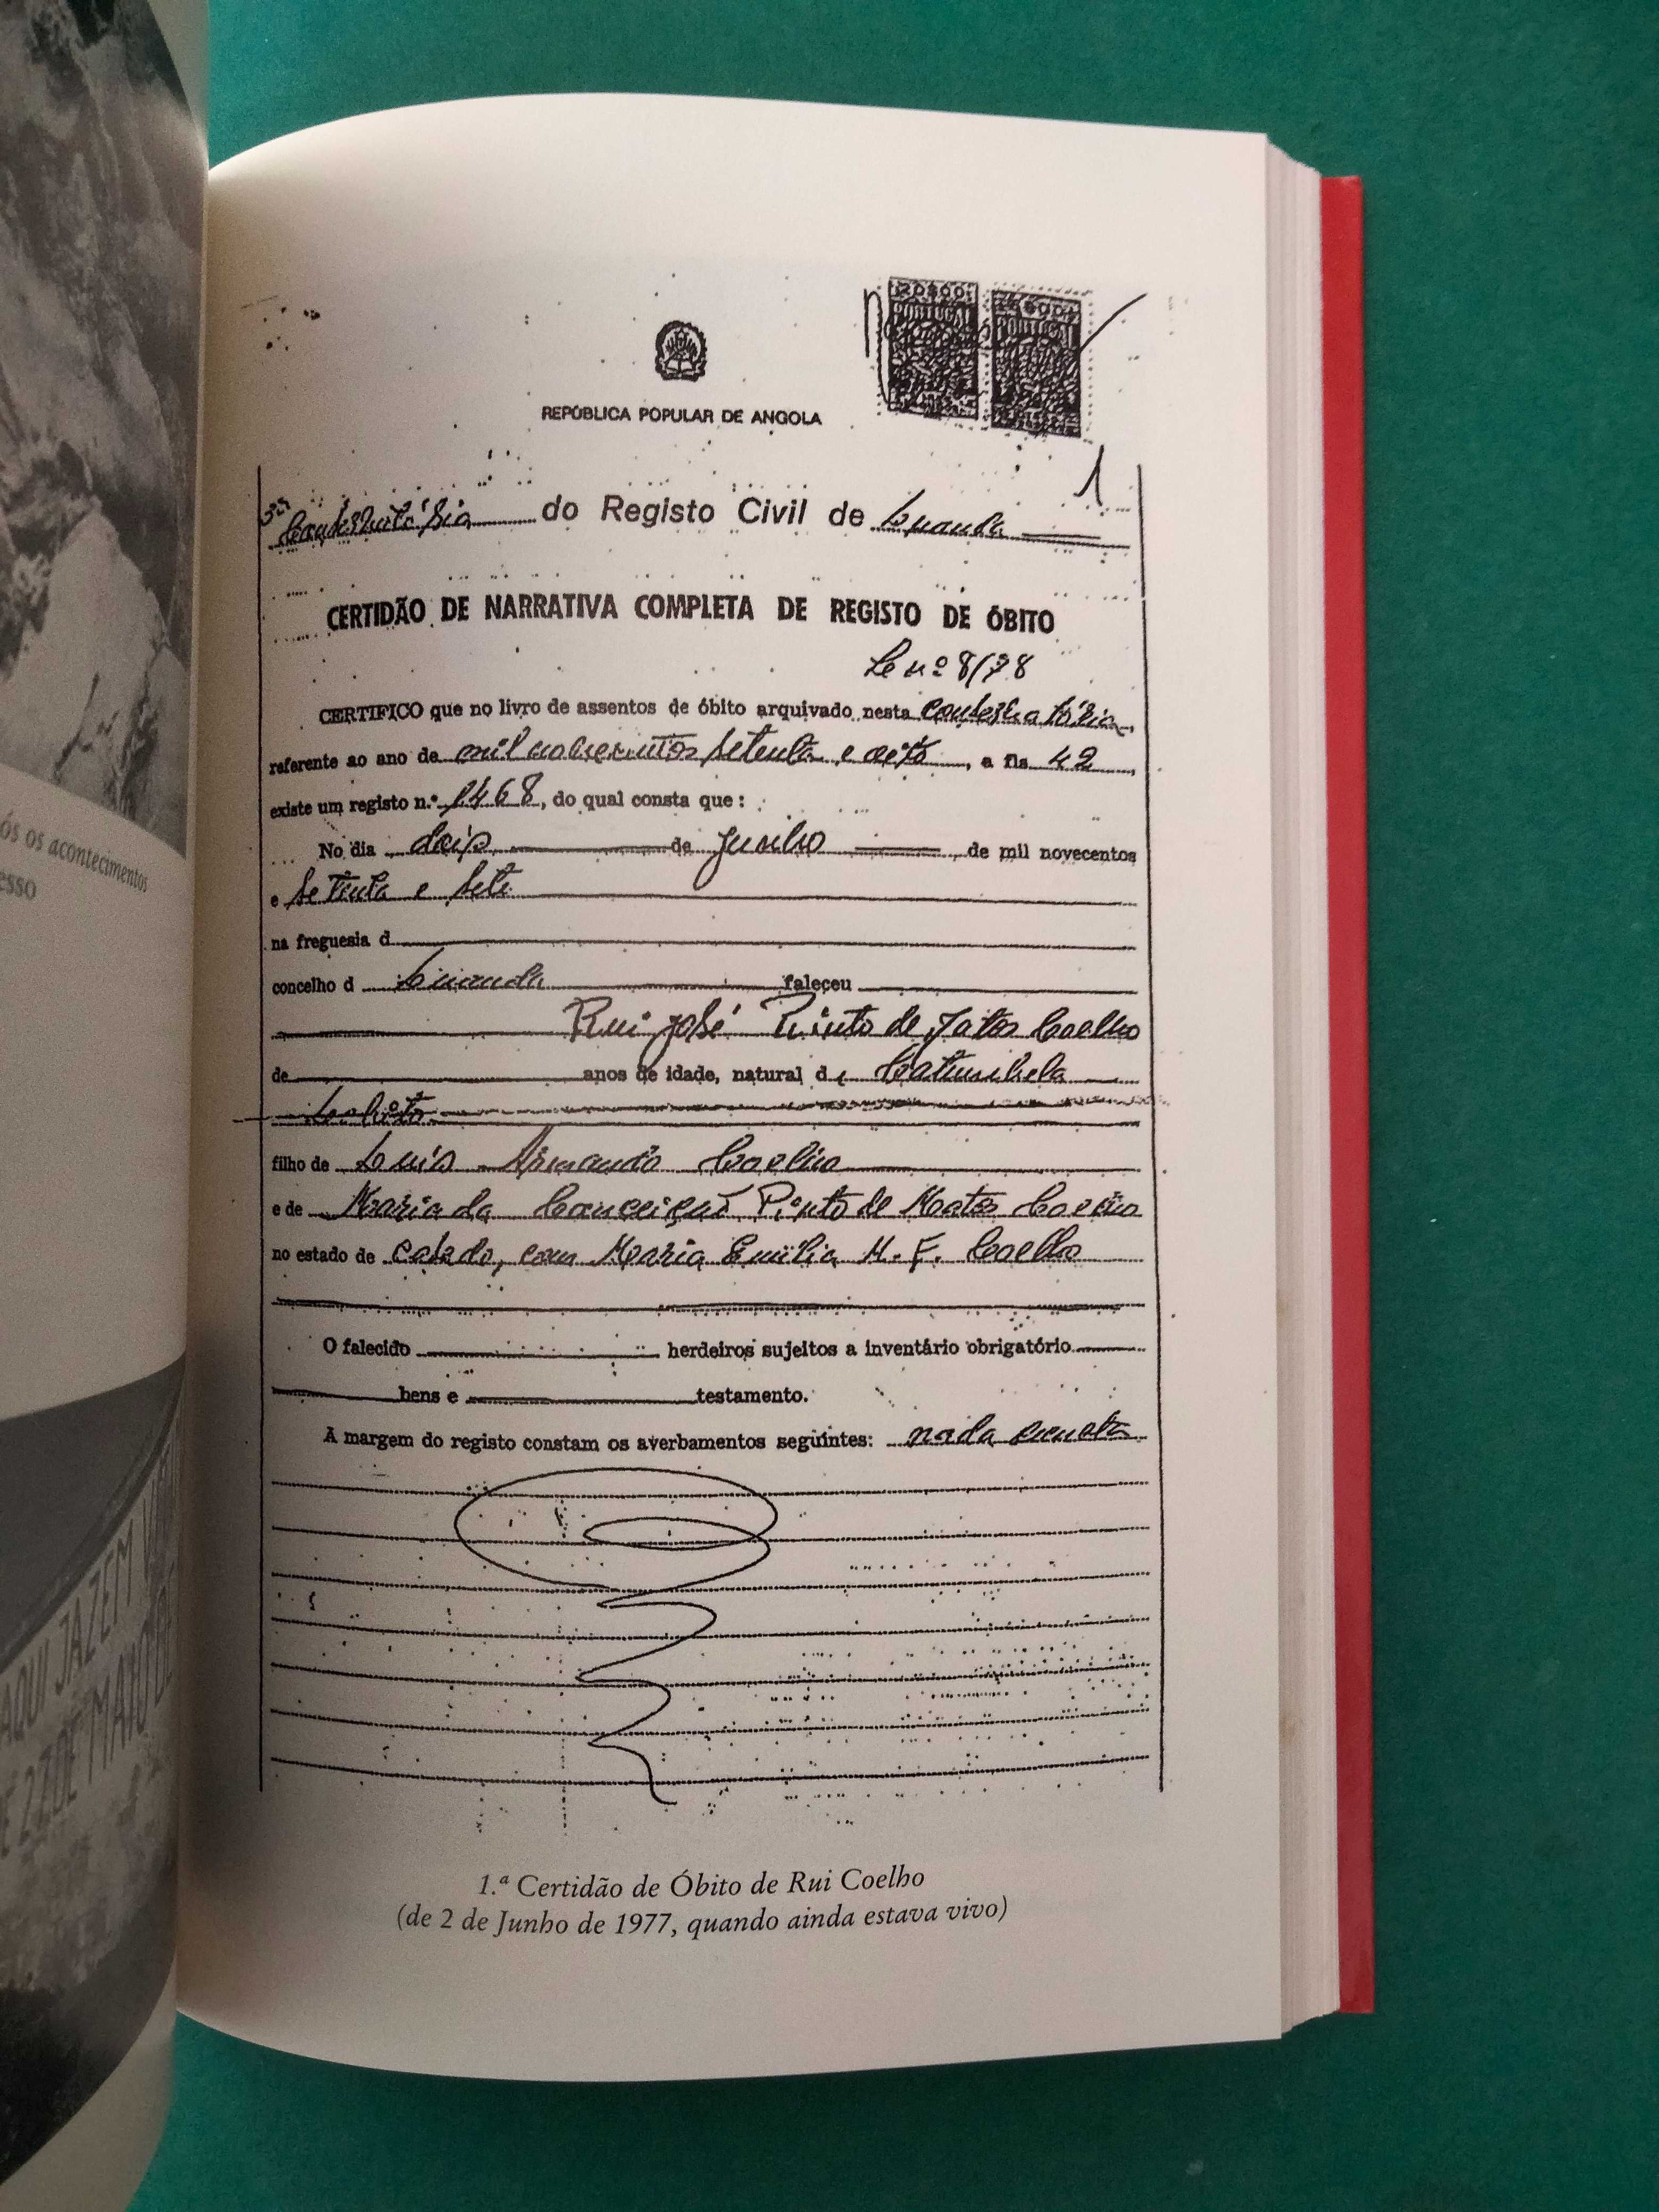 ós os acontecimentos
esso
AQUI JAZEM
DE 27 DE MAIO DE
20$00
PORTUGAL
PORTUGAL
REPÚBLICA POPULAR DE ANGOLA
1
Conservatória do Registo Civil de Luanda
CERTIDÃO DE NARRATIVA COMPLETA DE REGISTO DE ÓBITO
nº 8/78
CERTIFICO que no livro de assentos de óbito arquivado nesta Conservatória,
referente ao ano de mil novecentos setenta e oito, a fls. 42,
existe um registo n.º 1468, do qual consta que:
No dia dois de Junho de mil novecentos
e setenta e sete
na freguesia d
concelho d Luanda faleceu
Rui José Pinto de Matos Coelho
de anos de idade, natural de Catumbela
Lobito
filho de Luís Armando Coelho
e de Maria da Conceição Pinto de Matos Coelho
no estado de casado, com Maria Emília M. F. Coelho
O falecido herdeiros sujeitos a inventário obrigatório
bens e testamento.
À margem do registo constam os averbamentos seguintes: nada consta
1.ª Certidão de Óbito de Rui Coelho
(de 2 de Junho de 1977, quando ainda estava vivo)